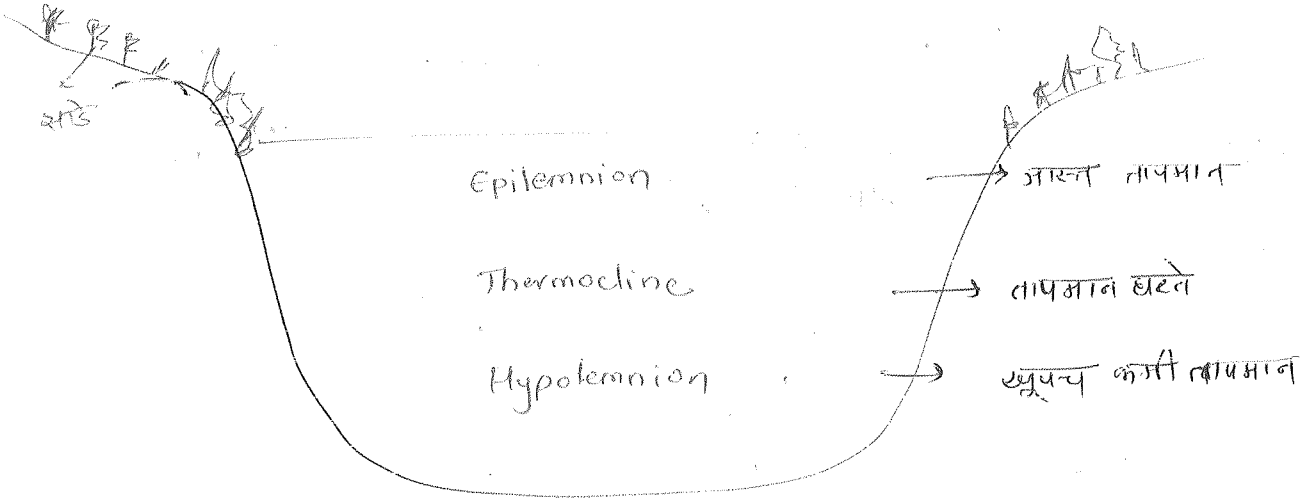 झाडे
Epilemnion → जास्त तापमान
Thermocline → तापमान घटते
Hypolemnion → खूपच कमी तापमान